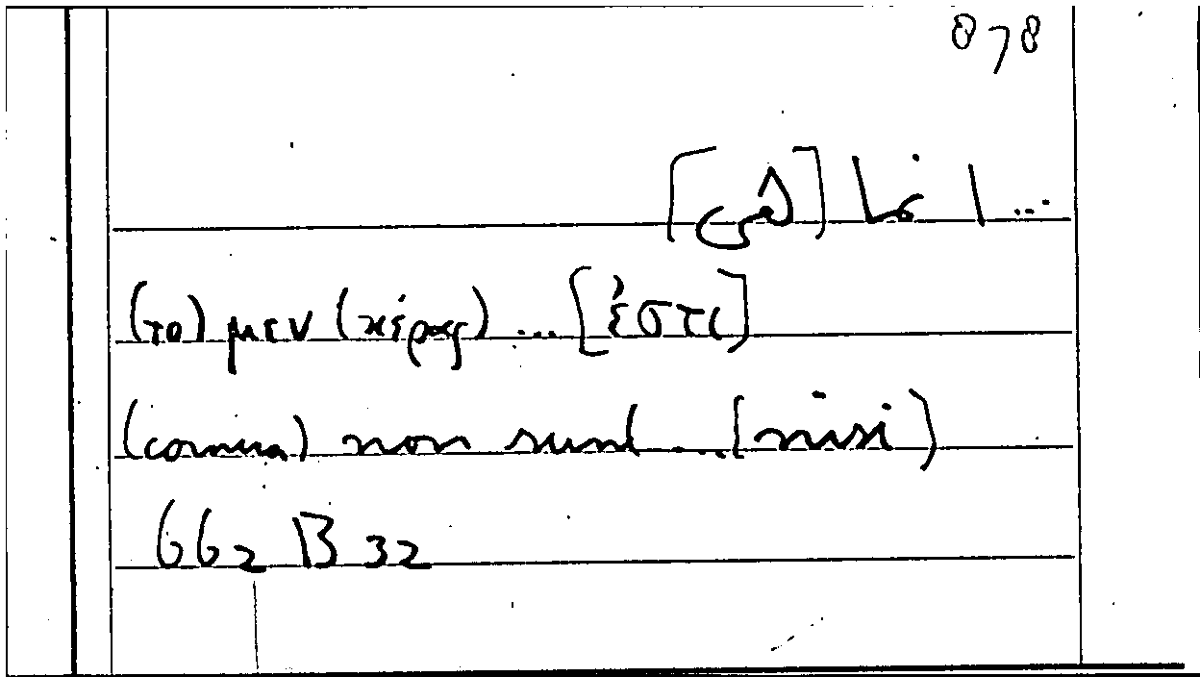 878
... انما [هى]
(το) μεν (κέρας) ... [ἐστι]
(cornua) non sunt ... [nisi)
662 B 32